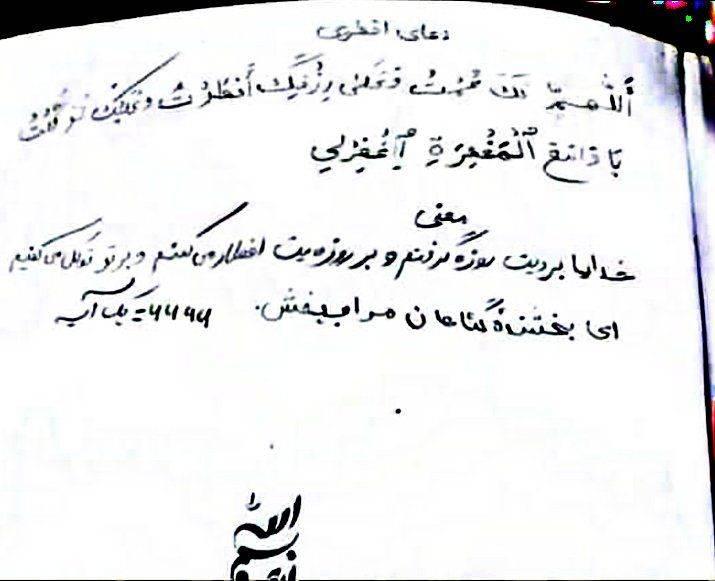 دعای افطاری
أَللّٰهمَّ لَكَ صُمْتُ وَعَلَی رِزْقِكَ أَفْطَرْتُ وَعَلَيْكَ تَوَكَّلْتُ
يَا وَاسِعَ ٱلْمَغْفِرَةِ ٱِغْفِرْلِي
معنی
خدایا برایت روزه گرفتم و بر روزه‌یت افطار می کنم و بر تو توکل می کنیم
ای بخشندهٔ گناهان مرا ببخش. ۶۶۶۶ = یک آیه
الله